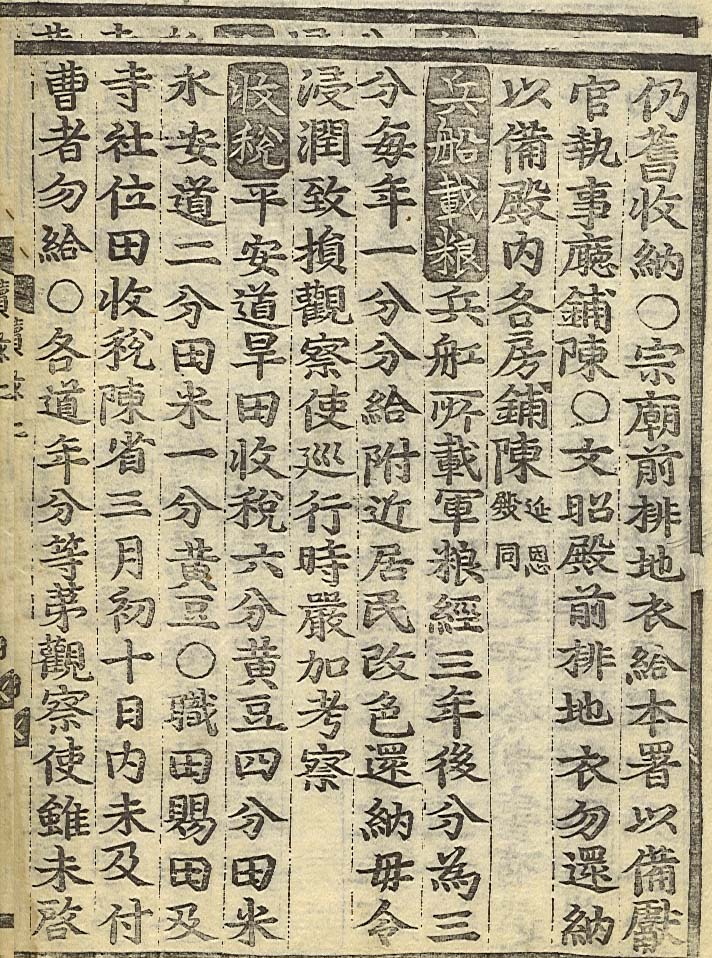 仍舊收納○宗廟前排地衣給本署以備獻
官執事廳鋪陳○文昭殿前排地衣勿還納
以備殿内各房鋪陳延恩殿同
兵船載粮兵舡所載軍粮經三年後分為三
分每年一分分給附近居民改色還納毋令
浸潤致損觀察使巡行時嚴加考察
收稅平安道旱田收稅六分黄豆四分田米
永安道二分田米一分黄豆○職田賜田及
寺社位田收稅陳省三月初十日内未及付
曹者勿給○各道年分等苐觀察使雖未啓